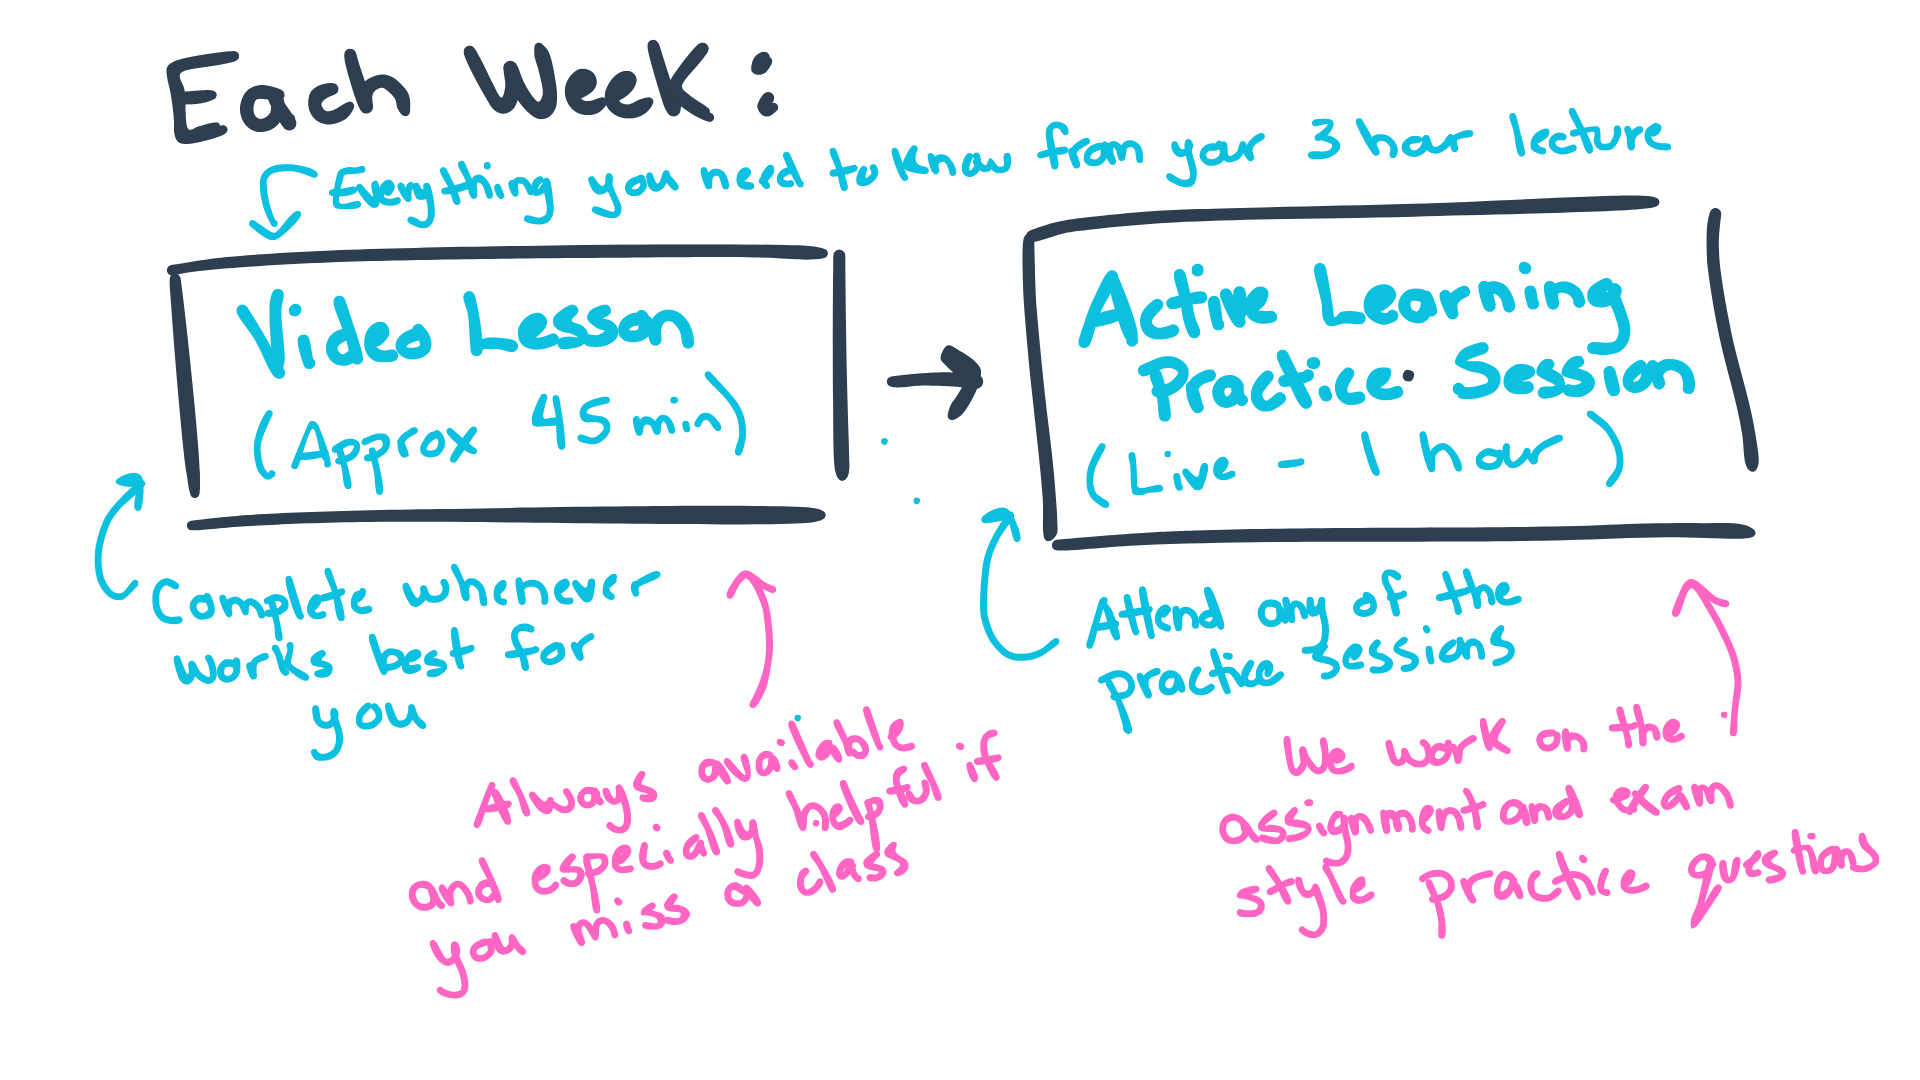 Each Week:
Everything you need to know from your 3 hour lecture
Video Lesson
(Approx 45 min)
Complete whenever
works best for
you
Always available
and especially helpful if
you miss a class
Active Learning
Practice Session
(Live - 1 hour)
Attend any of the
practice sessions
We work on the
assignment and exam
style practice questions